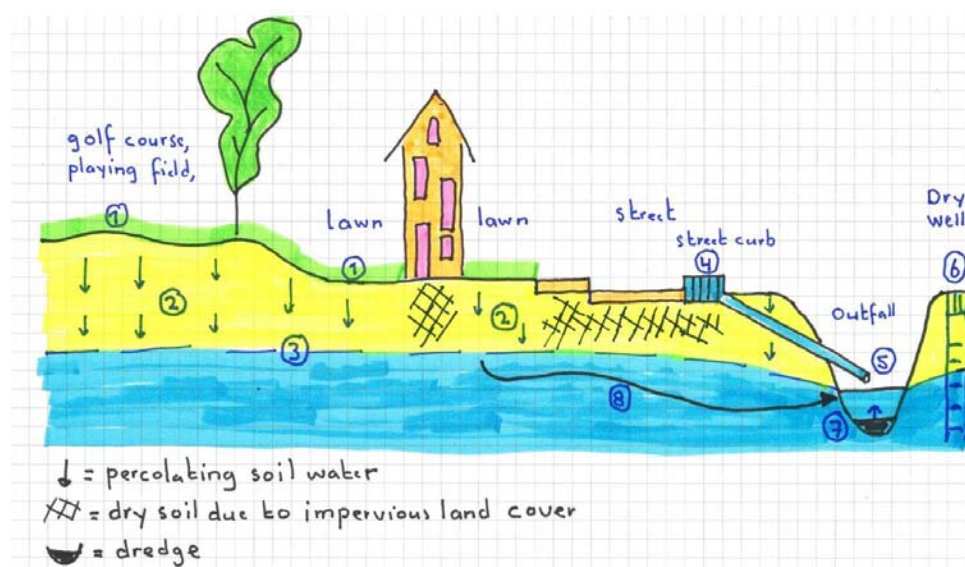 golf course,
playing field,
1
lawn
lawn
1
2
2
3
street
street curb
4
Outfall
5
Dry
well
6
7
8
↓ = percolating soil water
= dry soil due to impervious land cover
= dredge